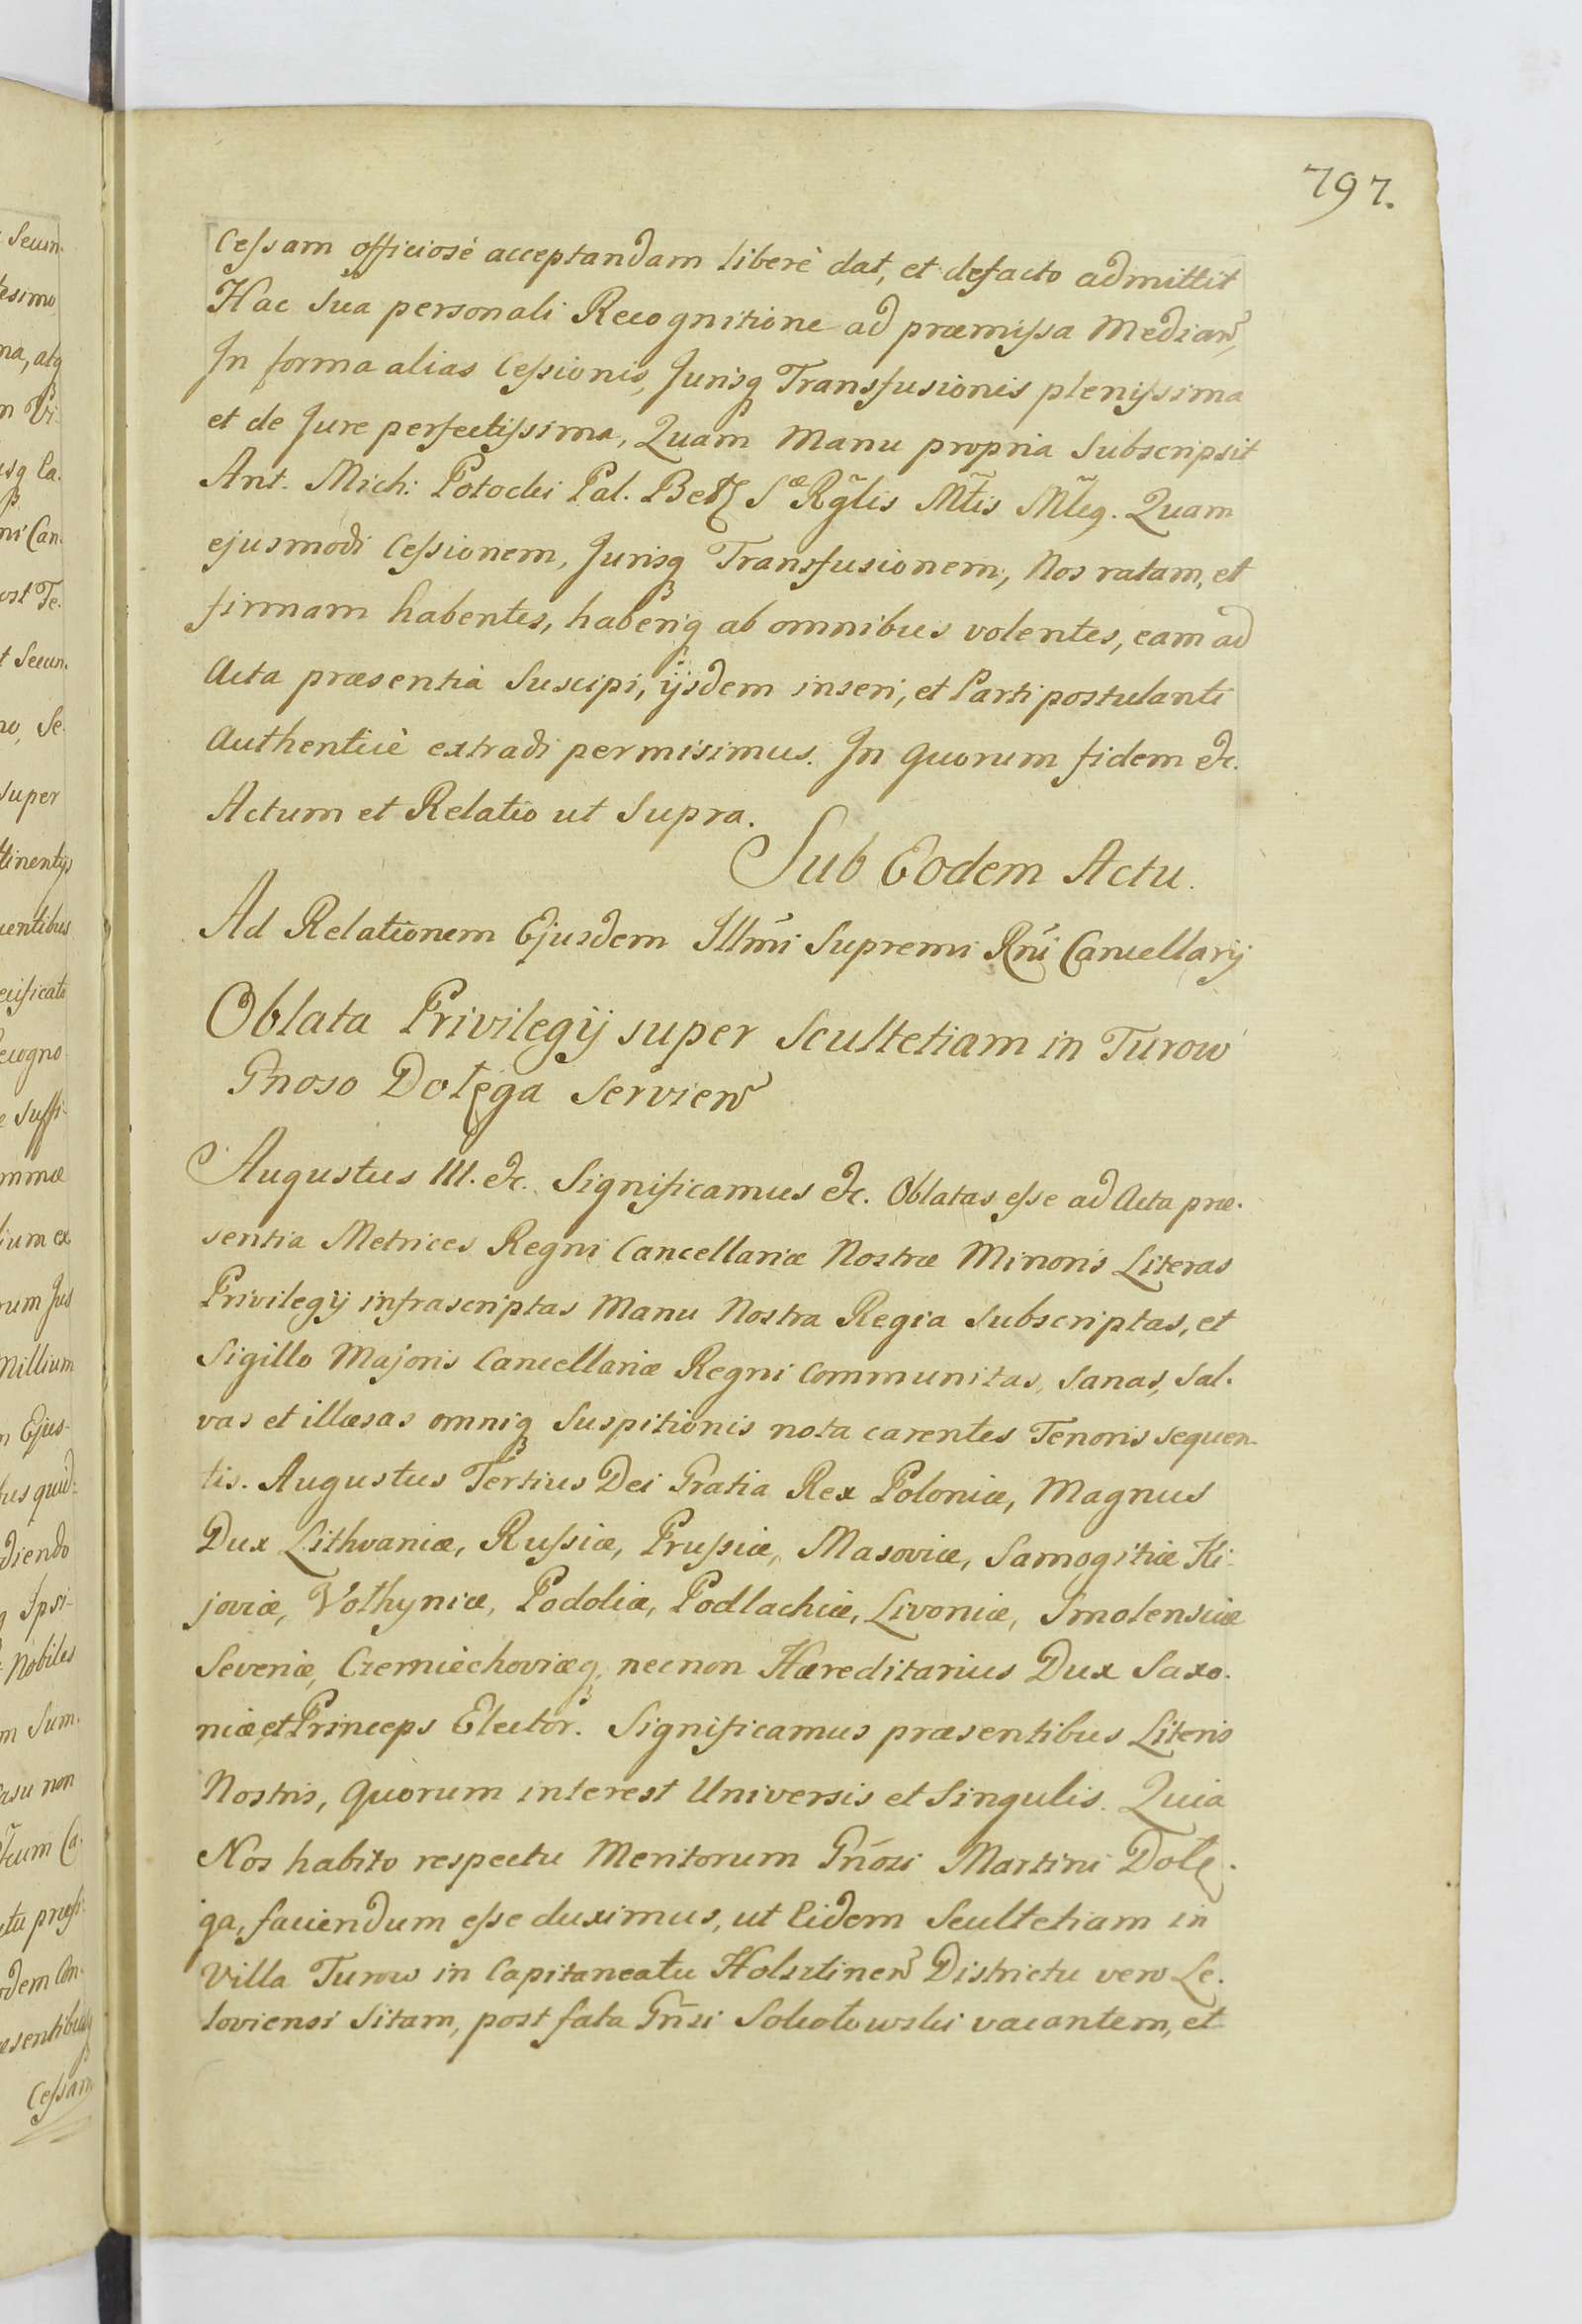 797.
Cessam officiosè acceptandam liberè dat, et defacto admittit
Hac Sua personali Recognitione ad præmissa Median̄,
In forma alias Cessionis, Jurisq Transfusionis plenissima
et de Jure perfectissima, Quam Manu propria Subscripsit
Ant. Mich: Potocki Pal. Bełz Sæ Rg̃lis Mt̃is Ml̃eg. Quam
ejusmodi Cessionem, Jurisq Transfusionem, Nos ratam, et
firmam habentes, haberiq ab omnibus volentes, eam ad
Acta præsentia Suscipi, ijsdem inseri, et Parti postulanti
Authenticè extradi permisimus. In quorum fidem &c.
Actum et Relatio ut Supra.
Sub Eodem Actu.
Ad Relationem Ejusdem Illm̃i Supremi Rñi Cancellarij
Oblata Privilegij super Scultetiam in Turow
Gnoso Dołęga Servien̄
Augustus III. &c. Significamus &c. Oblatas esse ad Acta præ-
sentia Metrices Regni Cancellariæ Nostræ Minoris Literas
Privilegij infrascriptas Manu Nostra Regia Subscriptas, et
Sigillo Majoris Cancellariæ Regni Communitas, Sanas, Sal-
vas et illæsas omniq Suspitionis nota carentes Tenoris sequen-
tis. Augustus Tertius Dei Gratia Rex Poloniæ, Magnus
Dux Lithvaniæ, Russiæ, Prussiæ, Masoviæ, Samogitiæ Ki-
joviæ, Volhyniæ, Podoliæ, Podlachiæ, Livoniæ, Smolensciæ
Severiæ, Czerniechoviæq, necnon Hæreditarius Dux Saxo-
niæ et Princeps Elector. Significamus præsentibus Literis
Nostris, quorum interest Universis et Singulis. Quia
Nos habito respectu Meritorum Gñosi Martini Dołę-
ga, faciendum esse duximus, ut Eidem Scultetiam in
Villa Turow in Capitaneatu Holsztinen̄ Districtu vero Le-
loviensi Sitam, post fata Gñsi Sokołowski vacantem, et